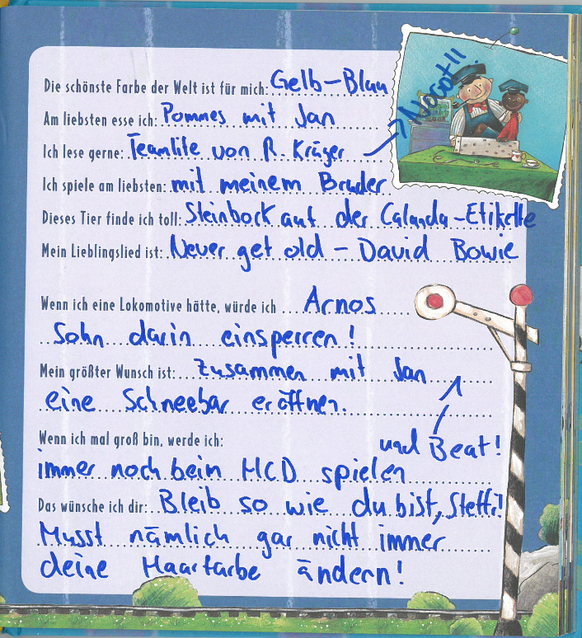 Die schönste Farbe der Welt ist für mich: Gelb-Blau
Am liebsten esse ich: Pommes mit Jan
Ich lese gerne: Teamlife von R. Krüger
Ich spiele am liebsten: mit meinem Bruder
Dieses Tier finde ich toll: Steinbock auf der Calanda-Etikette
Mein Lieblingslied ist: Never get old - David Bowie
Wenn ich eine Lokomotive hätte, würde ich Arnos
Sohn darin einsperren!
Mein größter Wunsch ist: Zusammen mit Jan
eine Schneebar eröffnen.
und Beat!
Wenn ich mal groß bin, werde ich:
immer noch beim HCD spielen
Das wünsche ich dir: Bleib so wie du bist, Steffi!
Musst nämlich gar nicht immer
deine Haarfarbe ändern!